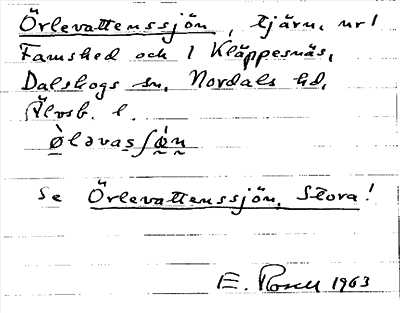 Örlevattenssjön, tjärn, nr 1
Famshed och 1 Kläppesnäs,
Dalskogs sn, Nordals hd,
Älvsb. l.
ø̀ləvasʃø̀n
Se Örlevattenssjön, Stora!
E. Rosell 1963